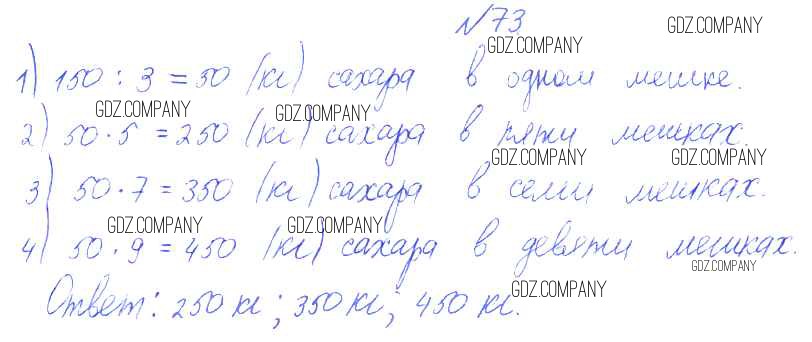 №73
1) 150 : 3 = 50 (кг) сахара в одном мешке.
2) 50 · 5 = 250 (кг) сахара в пяти мешках.
3) 50 · 7 = 350 (кг) сахара в семи мешках.
4) 50 · 9 = 450 (кг) сахара в девяти мешках.
Ответ: 250 кг; 350 кг; 450 кг.
GDZ.COMPANY
GDZ.COMPANY
GDZ.COMPANY
GDZ.COMPANY
GDZ.COMPANY
GDZ.COMPANY
GDZ.COMPANY
GDZ.COMPANY
GDZ.COMPANY
GDZ.COMPANY